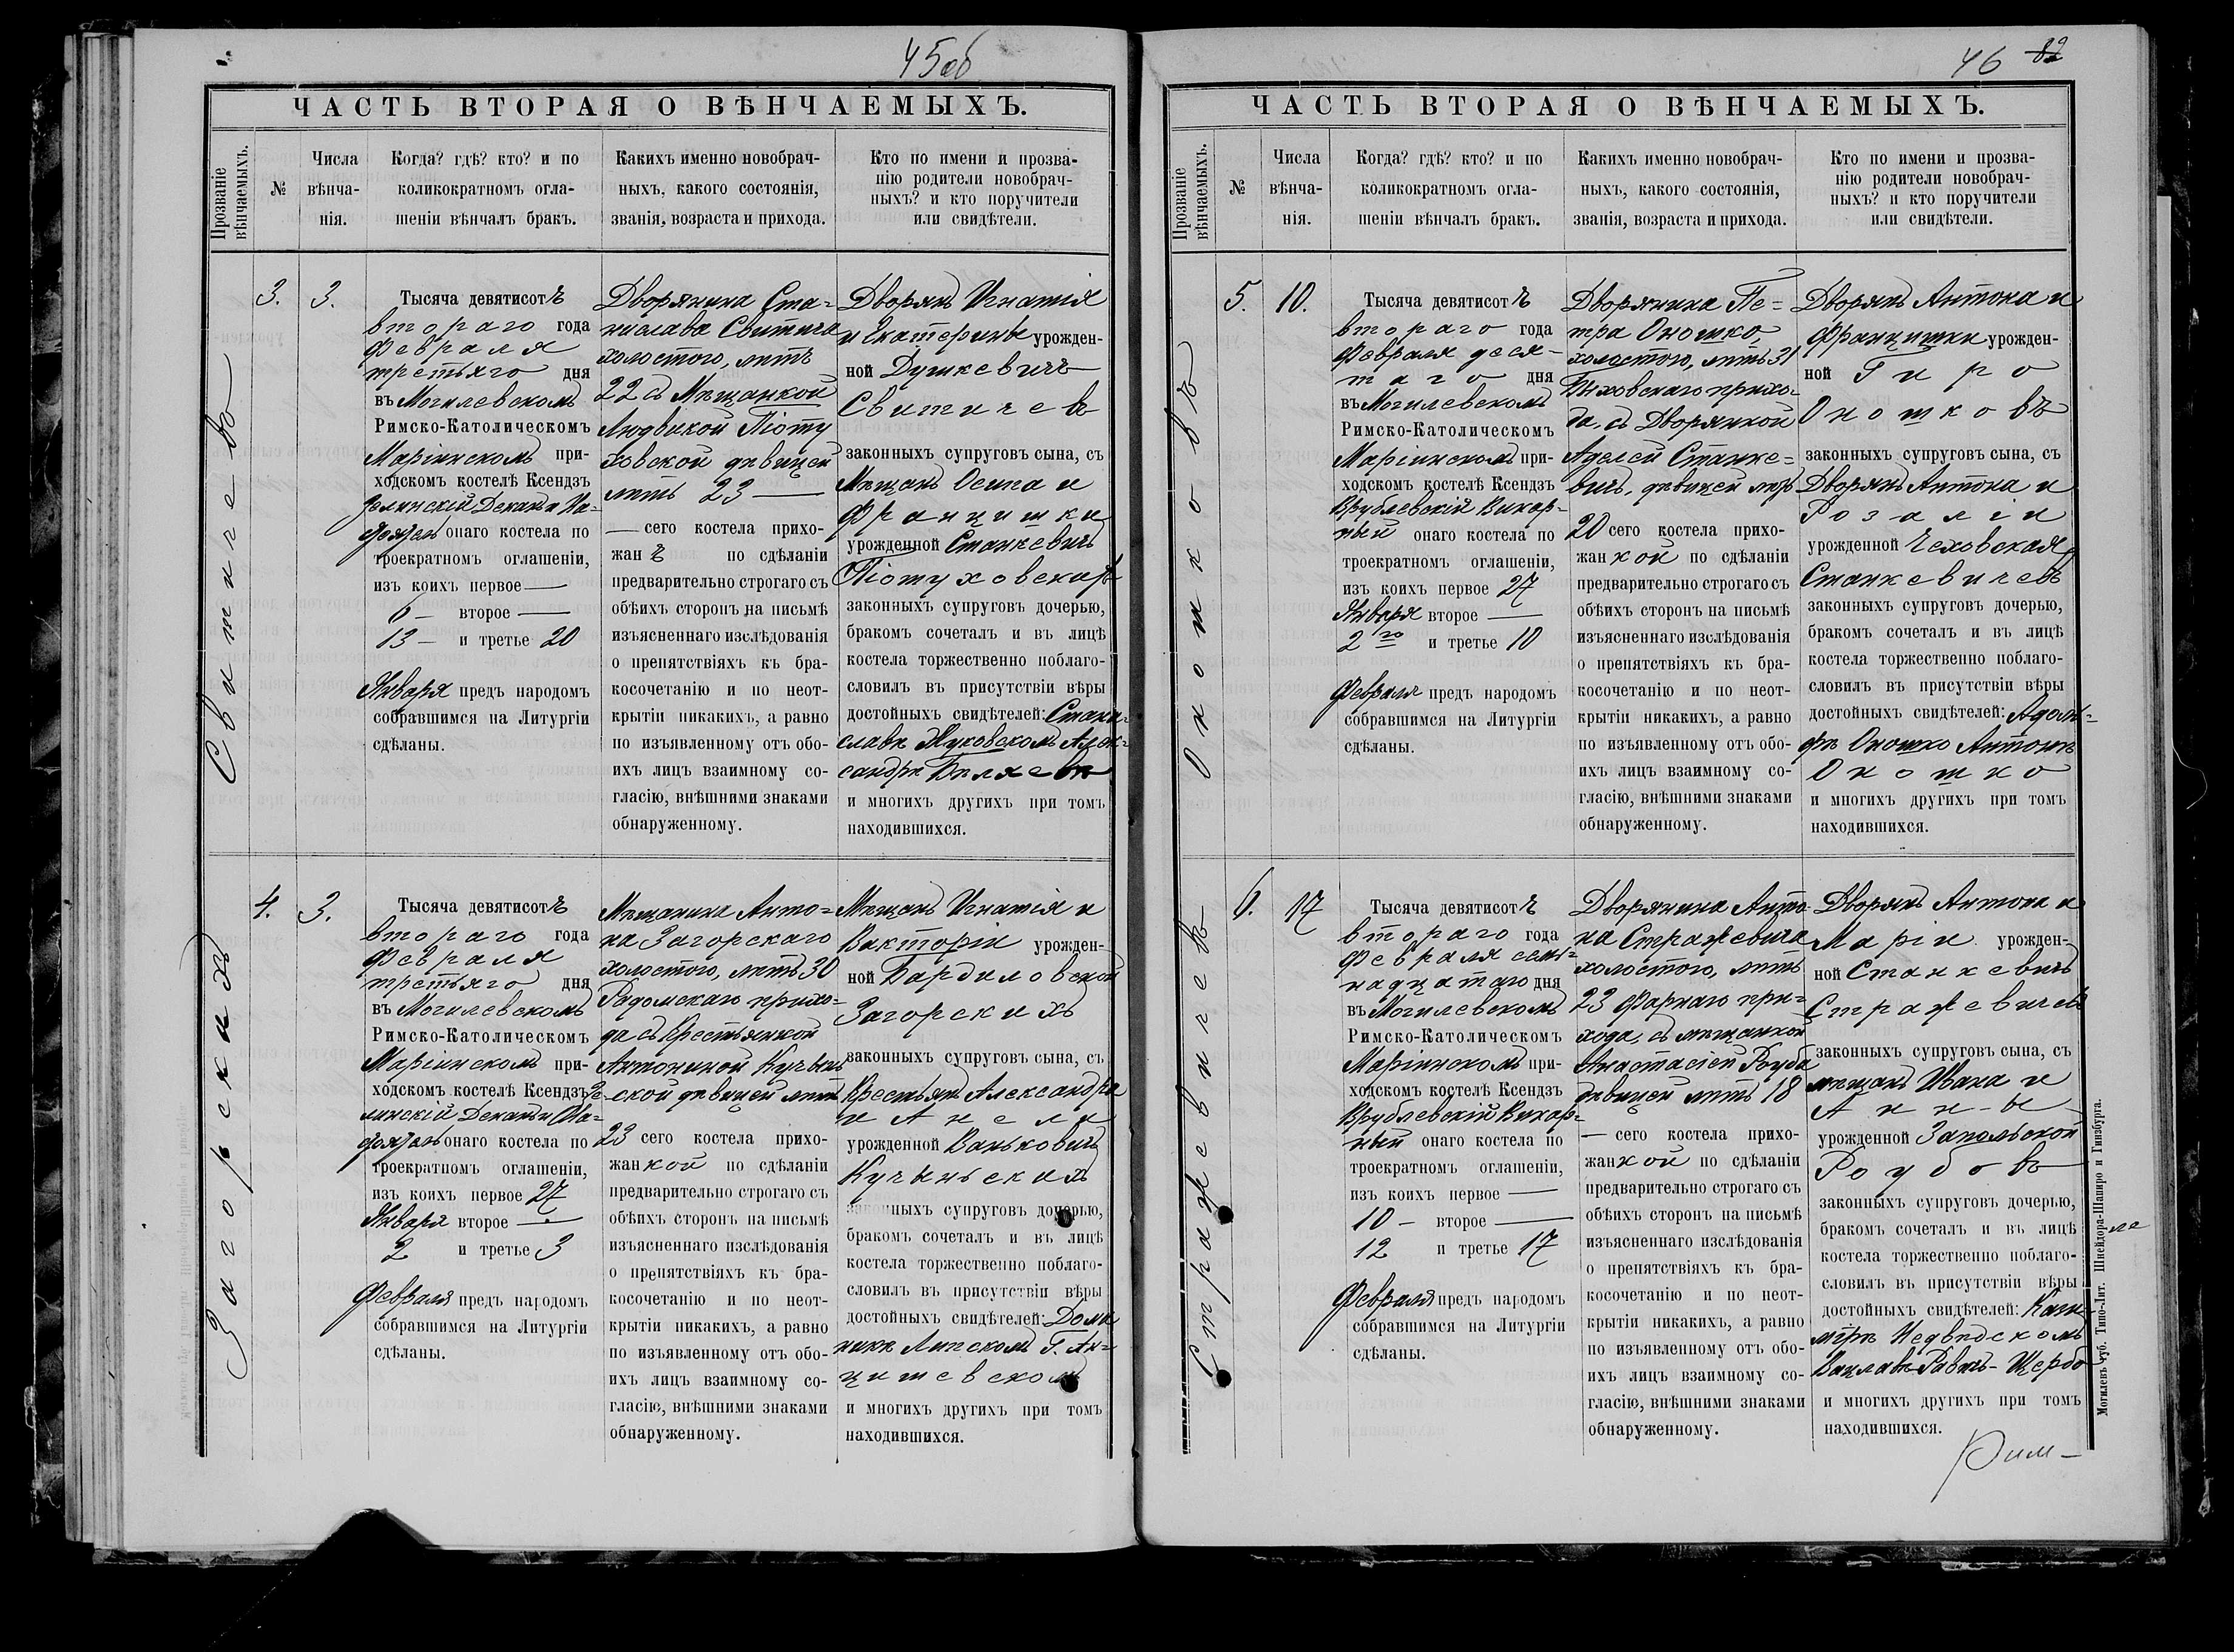 45об
ЧАСТЬ ВТОРАЯ О ВѢНЧАЕМЫХЪ.
Прозваніе
вѣнчаемыхъ.
№
Числа
вѣнча-
нія.
Когда? гдѣ? кто? и по
коликократномъ огла-
шеніи вѣнчалъ бракъ.
Какихъ именно новобрач-
ныхъ, какого состоянія,
званія, возраста и прихода.
Кто по имени и прозва-
нію родители новобрач-
ныхъ? и кто поручители
или свидѣтели.
Свитичевъ
3.
3.
Тысяча девятисотъ
второго года
Февраля
третьяго дня
въ Могилевскомъ
Римско-Католическомъ
Маріинскомъ при-
ходскомъ костелѣ Ксендзъ
Зелинскій Деканъ и На-
стоятель онаго костела по
троекратномъ оглашеніи,
изъ коихъ первое —
6 — второе —
13 — и третье 20
Января предъ народомъ
собравшимся на Литургіи
сдѣланы.
Дворянина Ста-
нислава Свитича
холостого, лѣтъ
22 съ Мѣщанкой
Людвикой Піоту
ховской дѣвицей
лѣтъ 23 —
— сего костела прихо-
жанъ по сдѣланіи
предварительно строгаго съ
обѣихъ сторонъ на письмѣ
изъясненнаго изслѣдованія
о препятствіяхъ къ бра-
косочетанію и по неот-
крытіи никакихъ, а равно
по изъявленному отъ обо-
ихъ лицъ взаимному со-
гласію, внѣшними знаками
обнаруженному.
Дворянъ Игнатія
и Екатерины урожден-
ной Душкевичъ
Свитичевъ
законныхъ супруговъ сына, съ
Мѣщанъ Осипа и
Францишки
урожденной Станкевичъ
Піотуховскихъ
законныхъ супруговъ дочерью,
бракомъ сочеталъ и въ лицѣ
костела торжественно поблаго-
словилъ въ присутствіи вѣры
достойныхъ свидѣтелей: Стани-
славѣ Жуковскомъ Алек-
сандрѣ Бѣляевѣ
и многихъ другихъ при томъ
находившихся.
Загорскихъ
4.
3.
Тысяча девятисотъ
второго года
Февраля
третьяго дня
въ Могилевскомъ
Римско-Католическомъ
Маріинскомъ при-
ходскомъ костелѣ Ксендзъ Зе-
линскій Деканъ и На-
стоятель онаго костела по
троекратномъ оглашеніи,
изъ коихъ первое 27
Января второе —
2 и третье 3
Февраля предъ народомъ
собравшимся на Литургіи
сдѣланы.
Мѣщанина Анто-
на Загорскаго
холостого, лѣтъ 30
Радомскаго прихо-
да съ Крестьянкой
Антониной Кучынь
ской дѣвицей лѣтъ
23 сего костела прихо-
жанкой по сдѣланіи
предварительно строгаго съ
обѣихъ сторонъ на письмѣ
изъясненнаго изслѣдованія
о препятствіяхъ къ бра-
косочетанію и по неот-
крытіи никакихъ, а равно
по изъявленному отъ обо-
ихъ лицъ взаимному со-
гласію, внѣшними знаками
обнаруженному.
Мѣщанъ Игнатія и
Викторіи урожден-
ной Бардиловской
Загорскихъ
законныхъ супруговъ сына, съ
Крестьянъ Александра
и Анели
урожденной Ваньковичъ
Кучыньскихъ
законныхъ супруговъ дочерью,
бракомъ сочеталъ и въ лицѣ
костела торжественно поблаго-
словилъ въ присутствіи вѣры
достойныхъ свидѣтелей: Доми
никѣ Липскомъ Г. Ян-
цишевскомъ
и многихъ другихъ при томъ
находившихся.
46
ЧАСТЬ ВТОРАЯ О ВѢНЧАЕМЫХЪ.
Прозваніе
вѣнчаемыхъ.
№
Числа
вѣнча-
нія.
Когда? гдѣ? кто? и по
коликократномъ огла-
шеніи вѣнчалъ бракъ.
Какихъ именно новобрач-
ныхъ, какого состоянія,
званія, возраста и прихода.
Кто по имени и прозва-
нію родители новобрач-
ныхъ? и кто поручители
или свидѣтели.
Оношковъ
5.
10.
Тысяча девятисотъ
второго года
Февраля деся-
таго дня
въ Могилевскомъ
Римско-Католическомъ
Маріинскомъ при-
ходскомъ костелѣ Ксендзъ
Врублевскій Викар-
ный онаго костела по
троекратномъ оглашеніи,
изъ коихъ первое 27
Января второе —
2го и третье 10
Февраля предъ народомъ
собравшимся на Литургіи
сдѣланы.
Дворянина Пе-
тра Оношко,
холостого, лѣтъ 31
Быховскаго прихо-
да, съ Дворянкой
Аделей Станке-
вичъ, дѣвицей лѣтъ
20 сего костела прихо-
жанкой по сдѣланіи
предварительно строгаго съ
обѣихъ сторонъ на письмѣ
изъясненнаго изслѣдованія
о препятствіяхъ къ бра-
косочетанію и по неот-
крытіи никакихъ, а равно
по изъявленному отъ обо-
ихъ лицъ взаимному со-
гласію, внѣшними знаками
обнаруженному.
Дворянъ Антона и
Францишки урожден-
ной Гиро
Оношковъ
законныхъ супруговъ сына, съ
Дворянъ Антона и
Розалги
урожденной Чеховская
Станкевичевъ
законныхъ супруговъ дочерью,
бракомъ сочеталъ и въ лицѣ
костела торжественно поблаго-
словилъ въ присутствіи вѣры
достойныхъ свидѣтелей: Адоль-
фѣ Оношко Антонѣ
Оношко
и многихъ другихъ при томъ
находившихся.
Стражевичевъ
6.
17
Тысяча девятисотъ
второго года
Февраля семь-
надцатаго дня
въ Могилевскомъ
Римско-Католическомъ
Маріинскомъ при-
ходскомъ костелѣ Ксендзъ
Врублевскій Викар-
ный онаго костела по
троекратномъ оглашеніи,
изъ коихъ первое —
10 — второе —
12 и третье 17
Февраля предъ народомъ
собравшимся на Литургіи
сдѣланы.
Дворянина Анто-
на Стражевича
холостого, лѣтъ
23 Фарнаго при-
хода, съ мѣщанкой
Анастасіей Роуба
дѣвицей лѣтъ 18
— сего костела прихо-
жанкой по сдѣланіи
предварительно строгаго съ
обѣихъ сторонъ на письмѣ
изъясненнаго изслѣдованія
о препятствіяхъ къ бра-
косочетанію и по неот-
крытіи никакихъ, а равно
по изъявленному отъ обо-
ихъ лицъ взаимному со-
гласію, внѣшними знаками
обнаруженному.
Дворянъ Антона и
Маріи урожден-
ной Станкевичъ
Стражевичевъ
законныхъ супруговъ сына, съ
мѣщанъ Ивана и
Анны
урожденной Запольской
Роубовъ
законныхъ супруговъ дочерью,
бракомъ сочеталъ и въ лицѣ
костела торжественно поблаго-
словилъ въ присутствіи вѣры
достойныхъ свидѣтелей: Кази-
мірѣ Недвѣдскомъ
Вацлавѣ Равичъ-Щербо
и многихъ другихъ при томъ
находившихся.
Рим-
Могилевъ губ. Типо-Лит. Шнейдора-Шапиро и Гинзбурга.